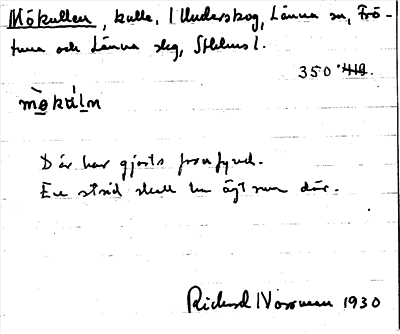 Mökullen, kulle, i Underskog, Länna sn, Frö-
tuna och Länna slg, Sthlms l.
350
mökúln
Där har gjorts pornfynd.
En strid skall ha ägt rum där.
Richard 1930